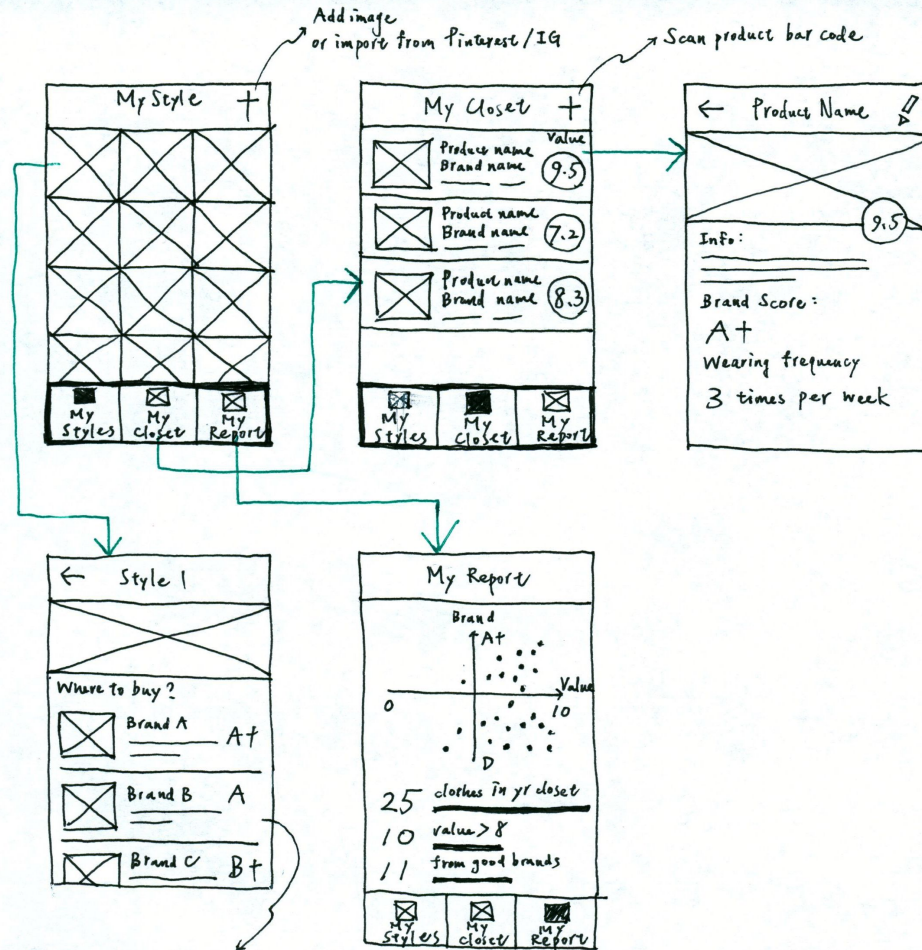 Add image
or import from Pinterest / IG
Scan product bar code
My Style +
My Closet +
Value
Product name
Brand name
9.5
Product name
Brand name
7.2
Product name
Brand name
8.3
My
Styles
My
Closet
My
Report
My
Styles
My
Closet
My
Report
← Product Name
9.5
Info:
Brand Score:
A+
Wearing frequency
3 times per week
← Style 1
Where to buy?
Brand A
A+
Brand B
A
Brand C
B+
My Report
Brand
A+
Value
0
10
D
25 clothes in yr closet
10 value > 8
11 from good brands
My
Styles
My
Closet
My
Report